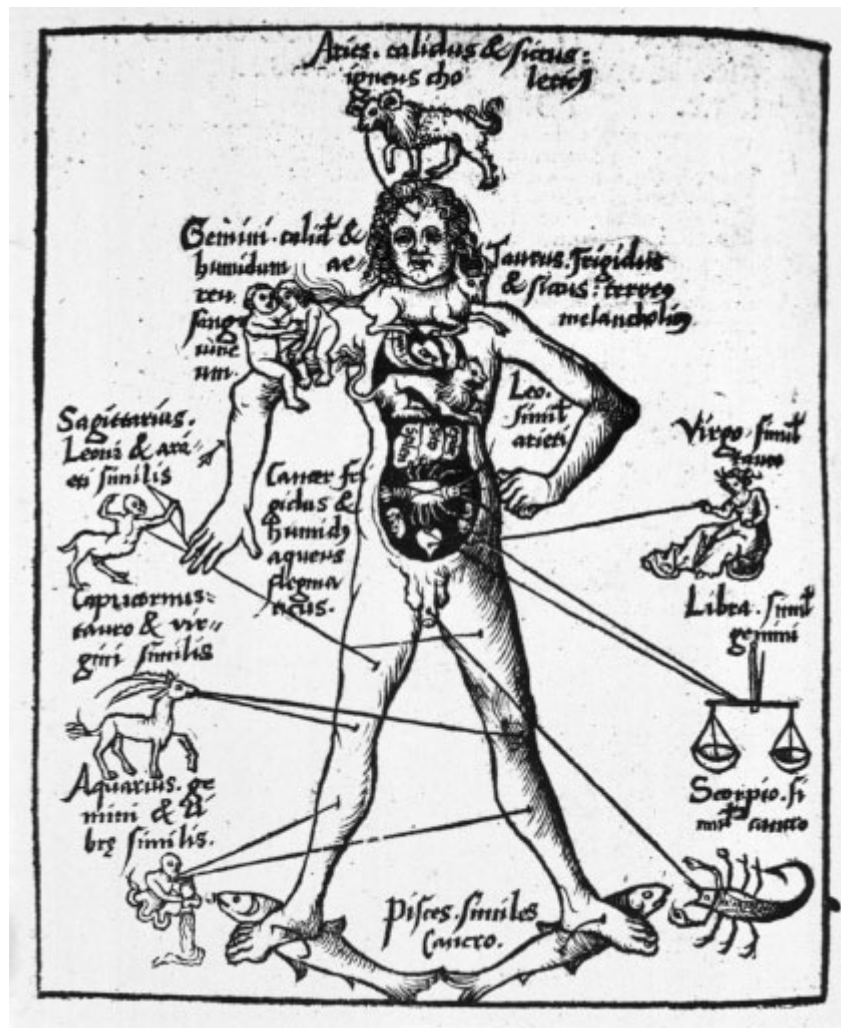 Aries. calidus & siccus:
igneus cho
lericꝰ
Gemini. calid̃ &
humidum
ae-
reu
sang
uine
um.
Taurus. frigidus
& siccus: terreꝰ
melancholicꝰ
Leo.
simil̃
arieti
Sagittarius.
Leoni & ari-
eti similis
Cancer fri
gidus &
humidꝰ
aqueus
flegma
ticus.
Virgo. simil̃
tauro
Capricornus:
tauro & vir-
gini similis
Libra. simil̃
gemini
Aquarius. ge
mini & li
brę similis.
Scorpio. si
mil̃ cancro
Pisces. similes
Cancro.